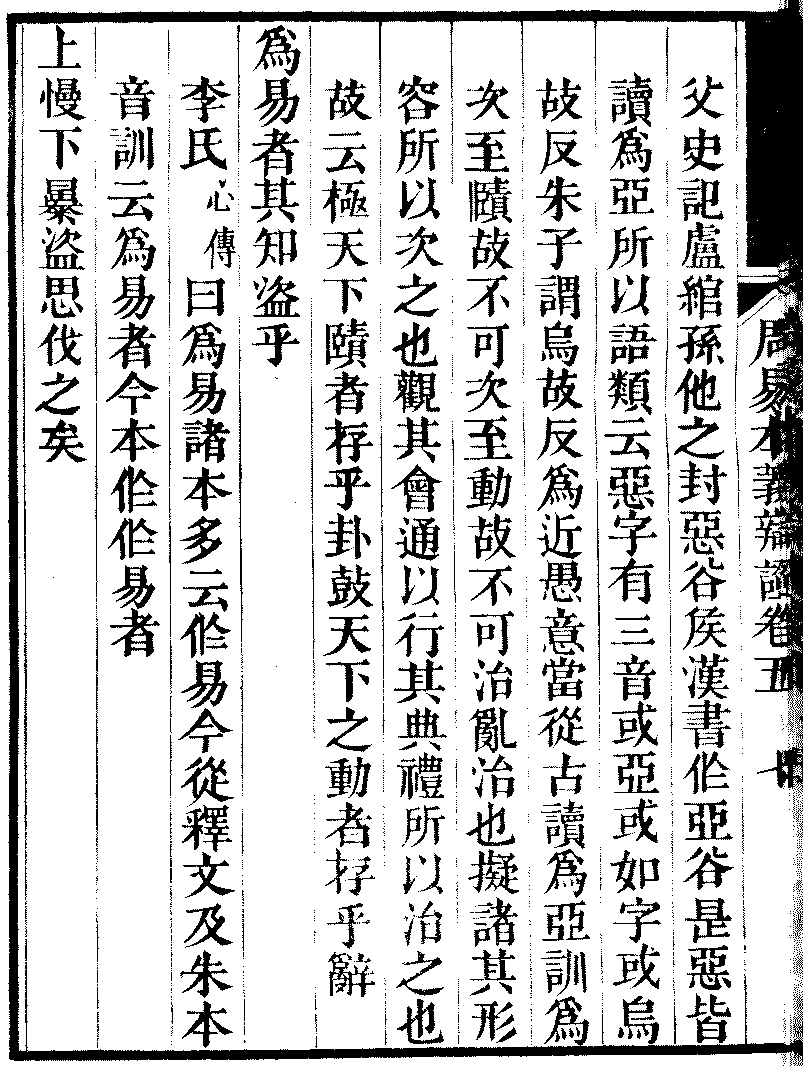 周易本義辯證卷五
父史記盧綰孫他之封惡谷矦漢書作亞谷是惡皆
讀爲亞所以語類云惡字有三音或亞或如字或烏
故反朱子謂烏故反爲近愚意當從古讀爲亞訓爲
次至賾故不可次至動故不可治亂治也擬諸其形
容所以次之也觀其會通以行其典禮所以治之也
故云極天下賾者存乎卦鼓天下之動者存乎辭
爲易者其知盗乎
李氏心傳曰爲易諸本多云作易今從釋文及朱本
音訓云爲易者今本作作易者
上慢下暴盜思伐之矣